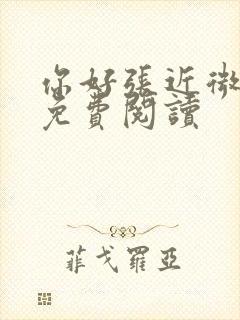 你好張近微
免費閱讀
菲戈羅亞